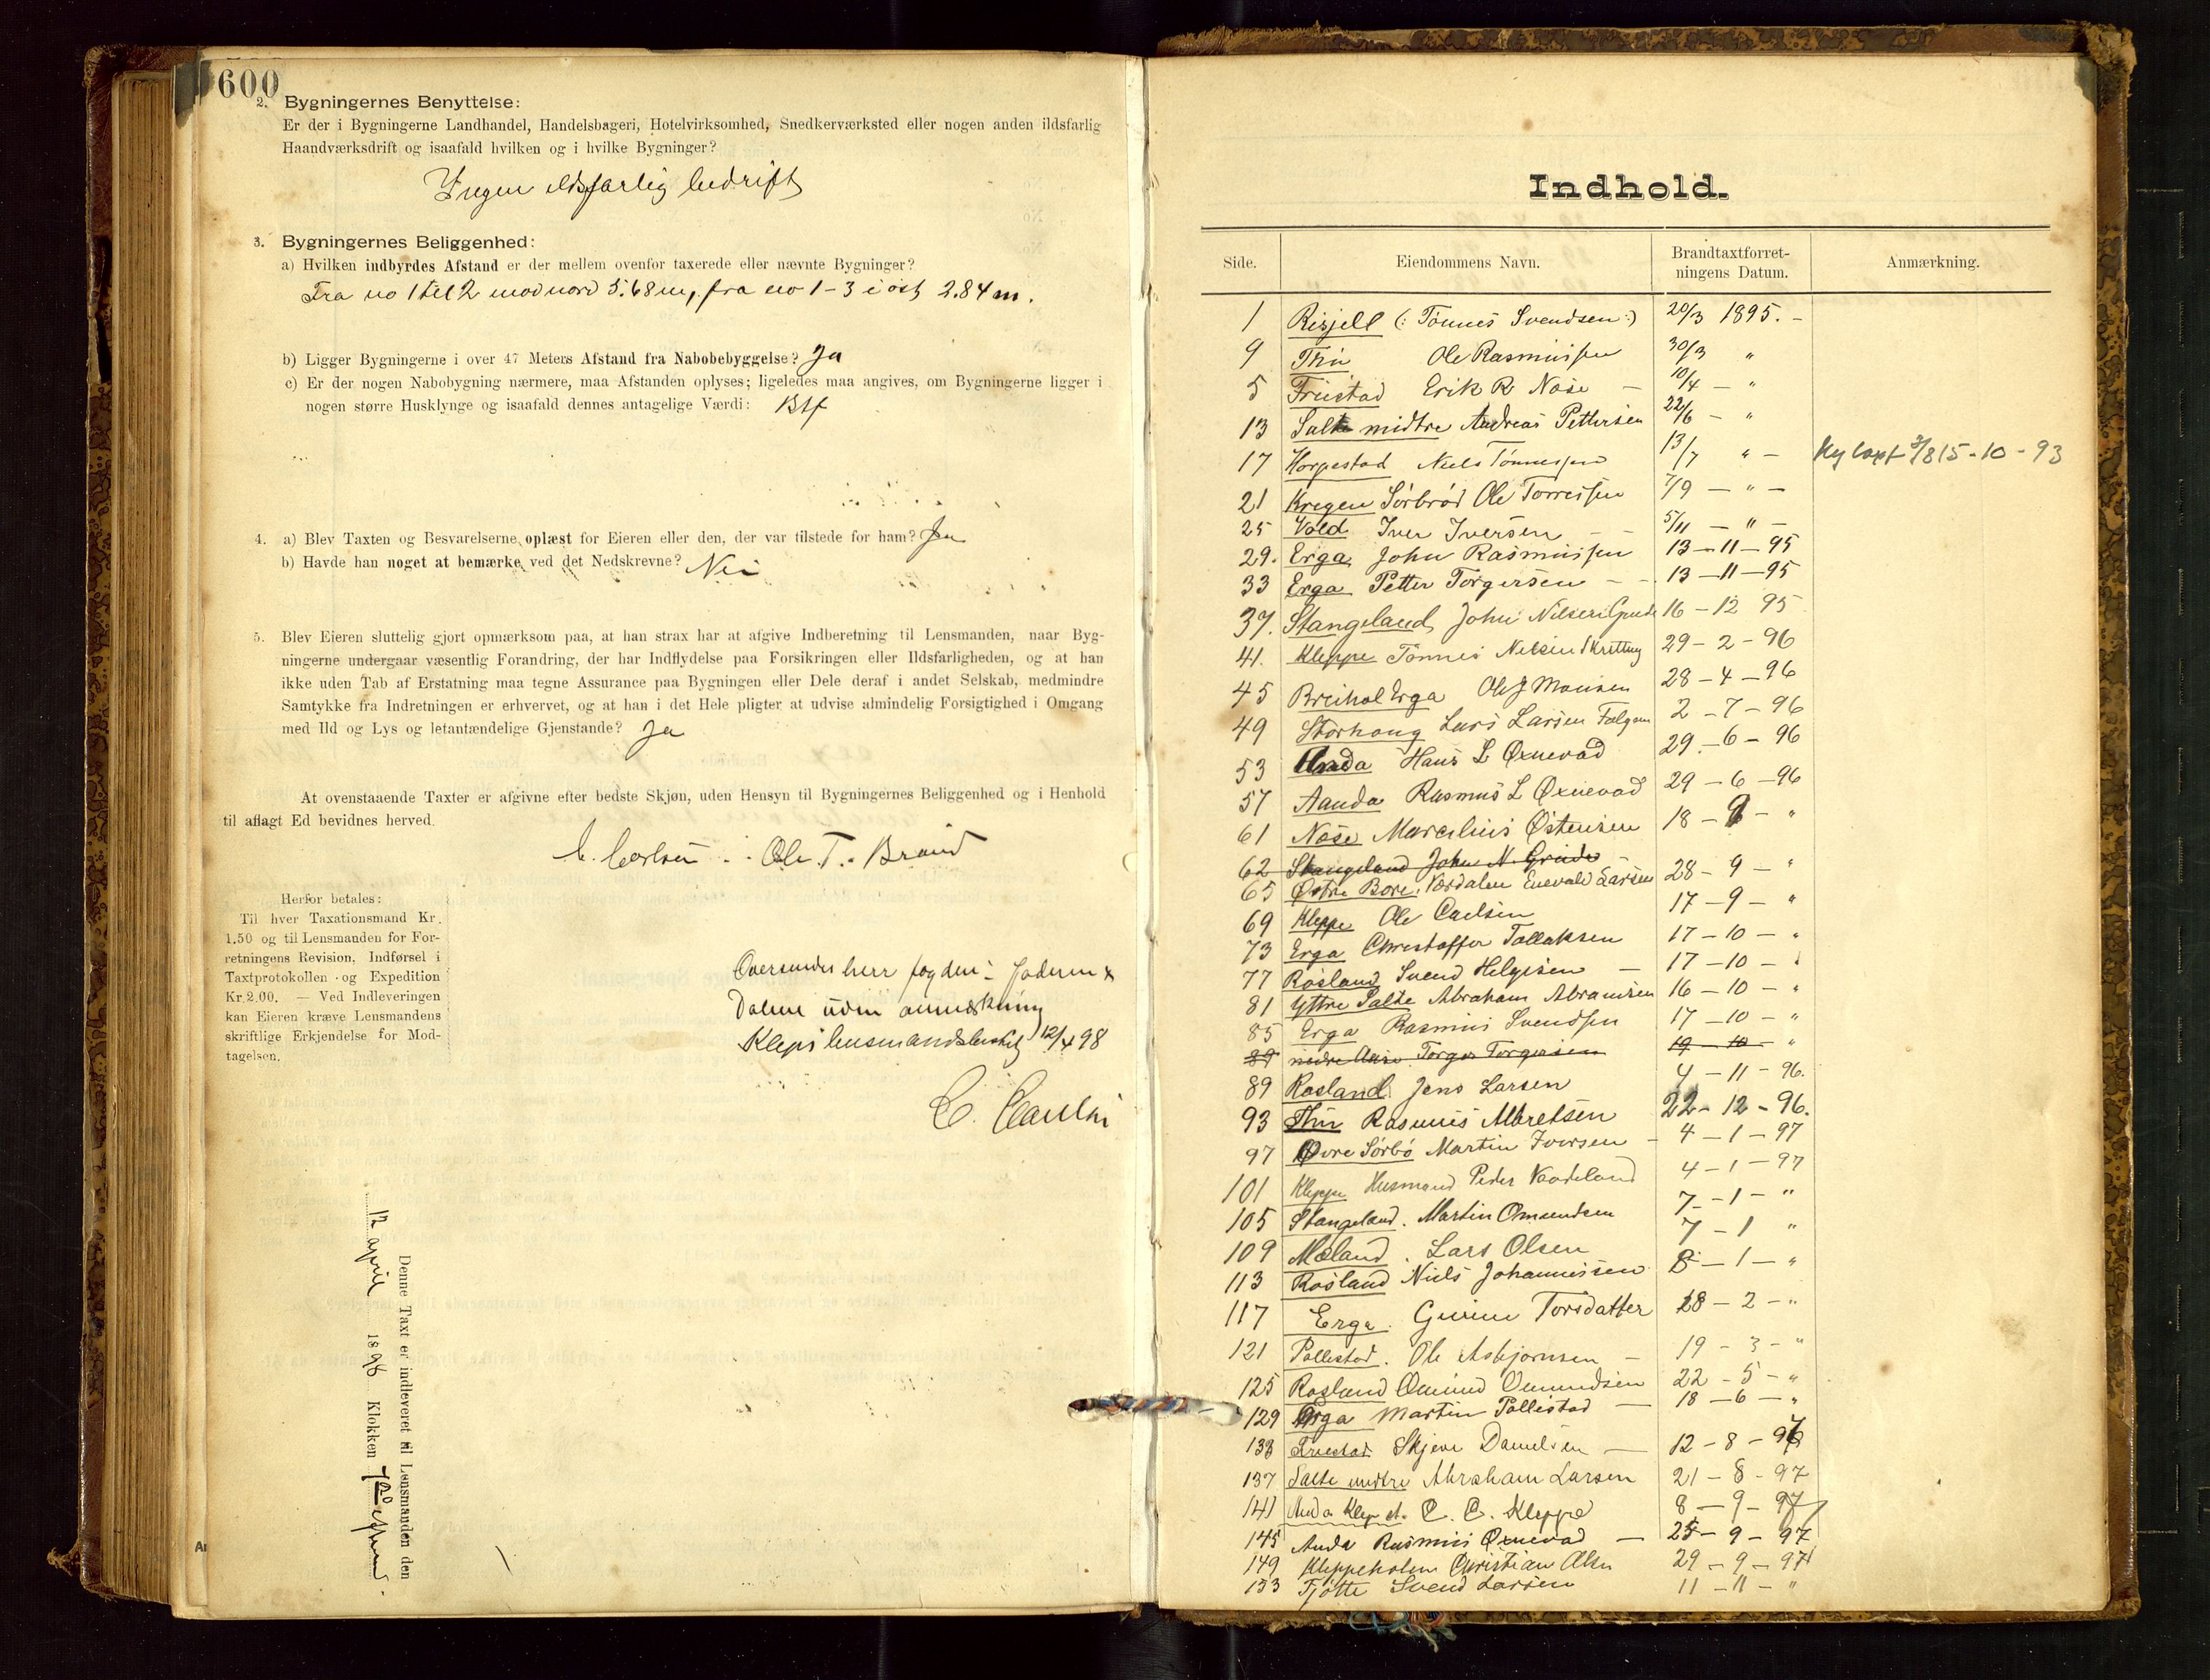 600
2. Bygningernes Benyttelse:
Er der i Bygningerne Landhandel, Handelsbageri, Hotelvirksomhed, Snedkerværksted eller nogen anden ildsfarlig
Haandværksdrift og isaafald hvilken og i hvilke Bygninger?
Ingen ildsfarlig bedrift
3. Bygningernes Beliggenhed:
a) Hvilken indbyrdes Afstand er der mellem ovenfor taxerede eller nævnte Bygninger?
Fra no 1 til 2 mod nord 5.68 m, fra no 1-3 i øst 2.84 m.
b) Ligger Bygningerne i over 47 Meters Afstand fra Nabobebyggelse? Ja
c) Er der nogen Nabobygning nærmere, maa Afstanden oplyses; ligeledes maa angives, om Bygningerne ligger i
nogen større Husklynge og isaafald dennes antagelige Værdi:
4. a) Blev Taxten og Besvarelserne oplæst for Eieren eller den, der var tilstede for ham? Ja
b) Havde han noget at bemærke ved det Nedskrevne? Nei
5. Blev Eieren sluttelig gjort opmærksom paa, at han strax har at afgive Indberetning til Lensmanden, naar Byg-
ningerne undergaar væsentlig Forandring, der har Indflydelse paa Forsikringen eller Ildsfarligheden, og at han
ikke uden Tab af Erstatning maa tegne Assurance paa Bygningen eller Dele deraf i andet Selskab, medmindre
Samtykke fra Indretningen er erhvervet, og at han i det Hele pligter at udvise almindelig Forsigtighed i Omgang
med Ild og Lys og letantændelige Gjenstande? Ja
At ovenstaaende Taxter er afgivne efter bedste Skjøn, uden Hensyn til Bygningernes Beliggenhed og i Henhold
til aflagt Ed bevidnes herved.
Ole T. Braud
Herfor betales:
Til hver Taxationsmand Kr.
1.50 og til Lensmanden for For-
retningens Revision, Indførsel i
Taxtprotokollen og Expedition
Kr. 2.00. — Ved Indleveringen
kan Eieren kræve Lensmandens
skriftlige Erkjendelse for Mod-
tagelsen.
Oversendes herr fogden i Jæderen &
Dalene uden anmærkning
12/4 98
Denne Taxt er indleveret til Lensmanden den
12 april 1898 Klokken
Indhold.
Side. Eiendommens Navn. Brandtaxtforret-ningens Datum. Anmærkning.
1 Risjell (: Tønnes Svendsen :) 20/3 1895. -
9 Thu Ole Rasmussen 30/3 "
5 Friestad Erik R Nøse - 10/4 - "
13 Salte midtre Andreas Pettersen 22/6 - "
17 Horpestad Niels Tønnessen 13/7 " -
21 Krogen Sörbröd Ole Torressen 7/9 - " -
25 Vold Iver Iversen - 5/11 - " -
29. Erga John Rasmussen 13-11-95
33 Erga Petter Torgersen - - 13-11-95
37. Stangeland John Nilsen Grude 16-12 95
41. Kleppe Tønnes Nilsen 29-2-96
45 Breihol Erga Ole J Monsen 28-4-96
49 Storhoug Lars Larsen 2-7-96
53 Anda Hans L Øxnevad 29.-6-96
57 Aanda Rasmus L Øxnevad 29-6-96
61 Nøse Marselius Østensen 18-9-"
62 Stangeland John N. Grude
65 Østre Bore, Værdalen Enevald Larsen 28-9-"
69 Kleppe Ole Carlsen 17-9-"
73 Erga Christoffer Tollaksen 17-10-"
77 Røsland Svend Helgesen - 17-10-"
81 Yttre Salte Abraham Abramsen 16-10-"
85 Erga Rasmus Svendsen 17-10-"
89 Torger Torgersen 19-10-"
89 Rosland Jens Larsen 4-11-96.
93 Thu Rasmus Albretsen 22-12-96.
97 Øvre Sørbø Martin Iversen - 4-1-97
101 Kleppe Husmand Peder Vaadeland 4-1-97
105 Stangeland. Martin Omundsen 7-1-"
109 Mæland. Lars Olsen 7-1 "
113 Rosland Niels Johannessen 8-1-"
117 Erga. Gurine Torsdatter 28-2-"
121 Pollestad. Ole Asbjørnsen - 19-3-"
125 Rosland Omund Omundsen 22-5-"
129 Erga Martin Pollestad - 18-6-"
133 Friestad Skjeve Danielsen - 12-8-97
137 Salte midtre Abraham Larsen 21-8-97
141 Anda Klep st. C. C. Kleppe 8-9-97
145 Anda Rasmus Øxnevad - 25-9-97
149 Kleppeholen Christian Olsen 29-9-97
153 Tjøtte Svend Larsen 11-11-"